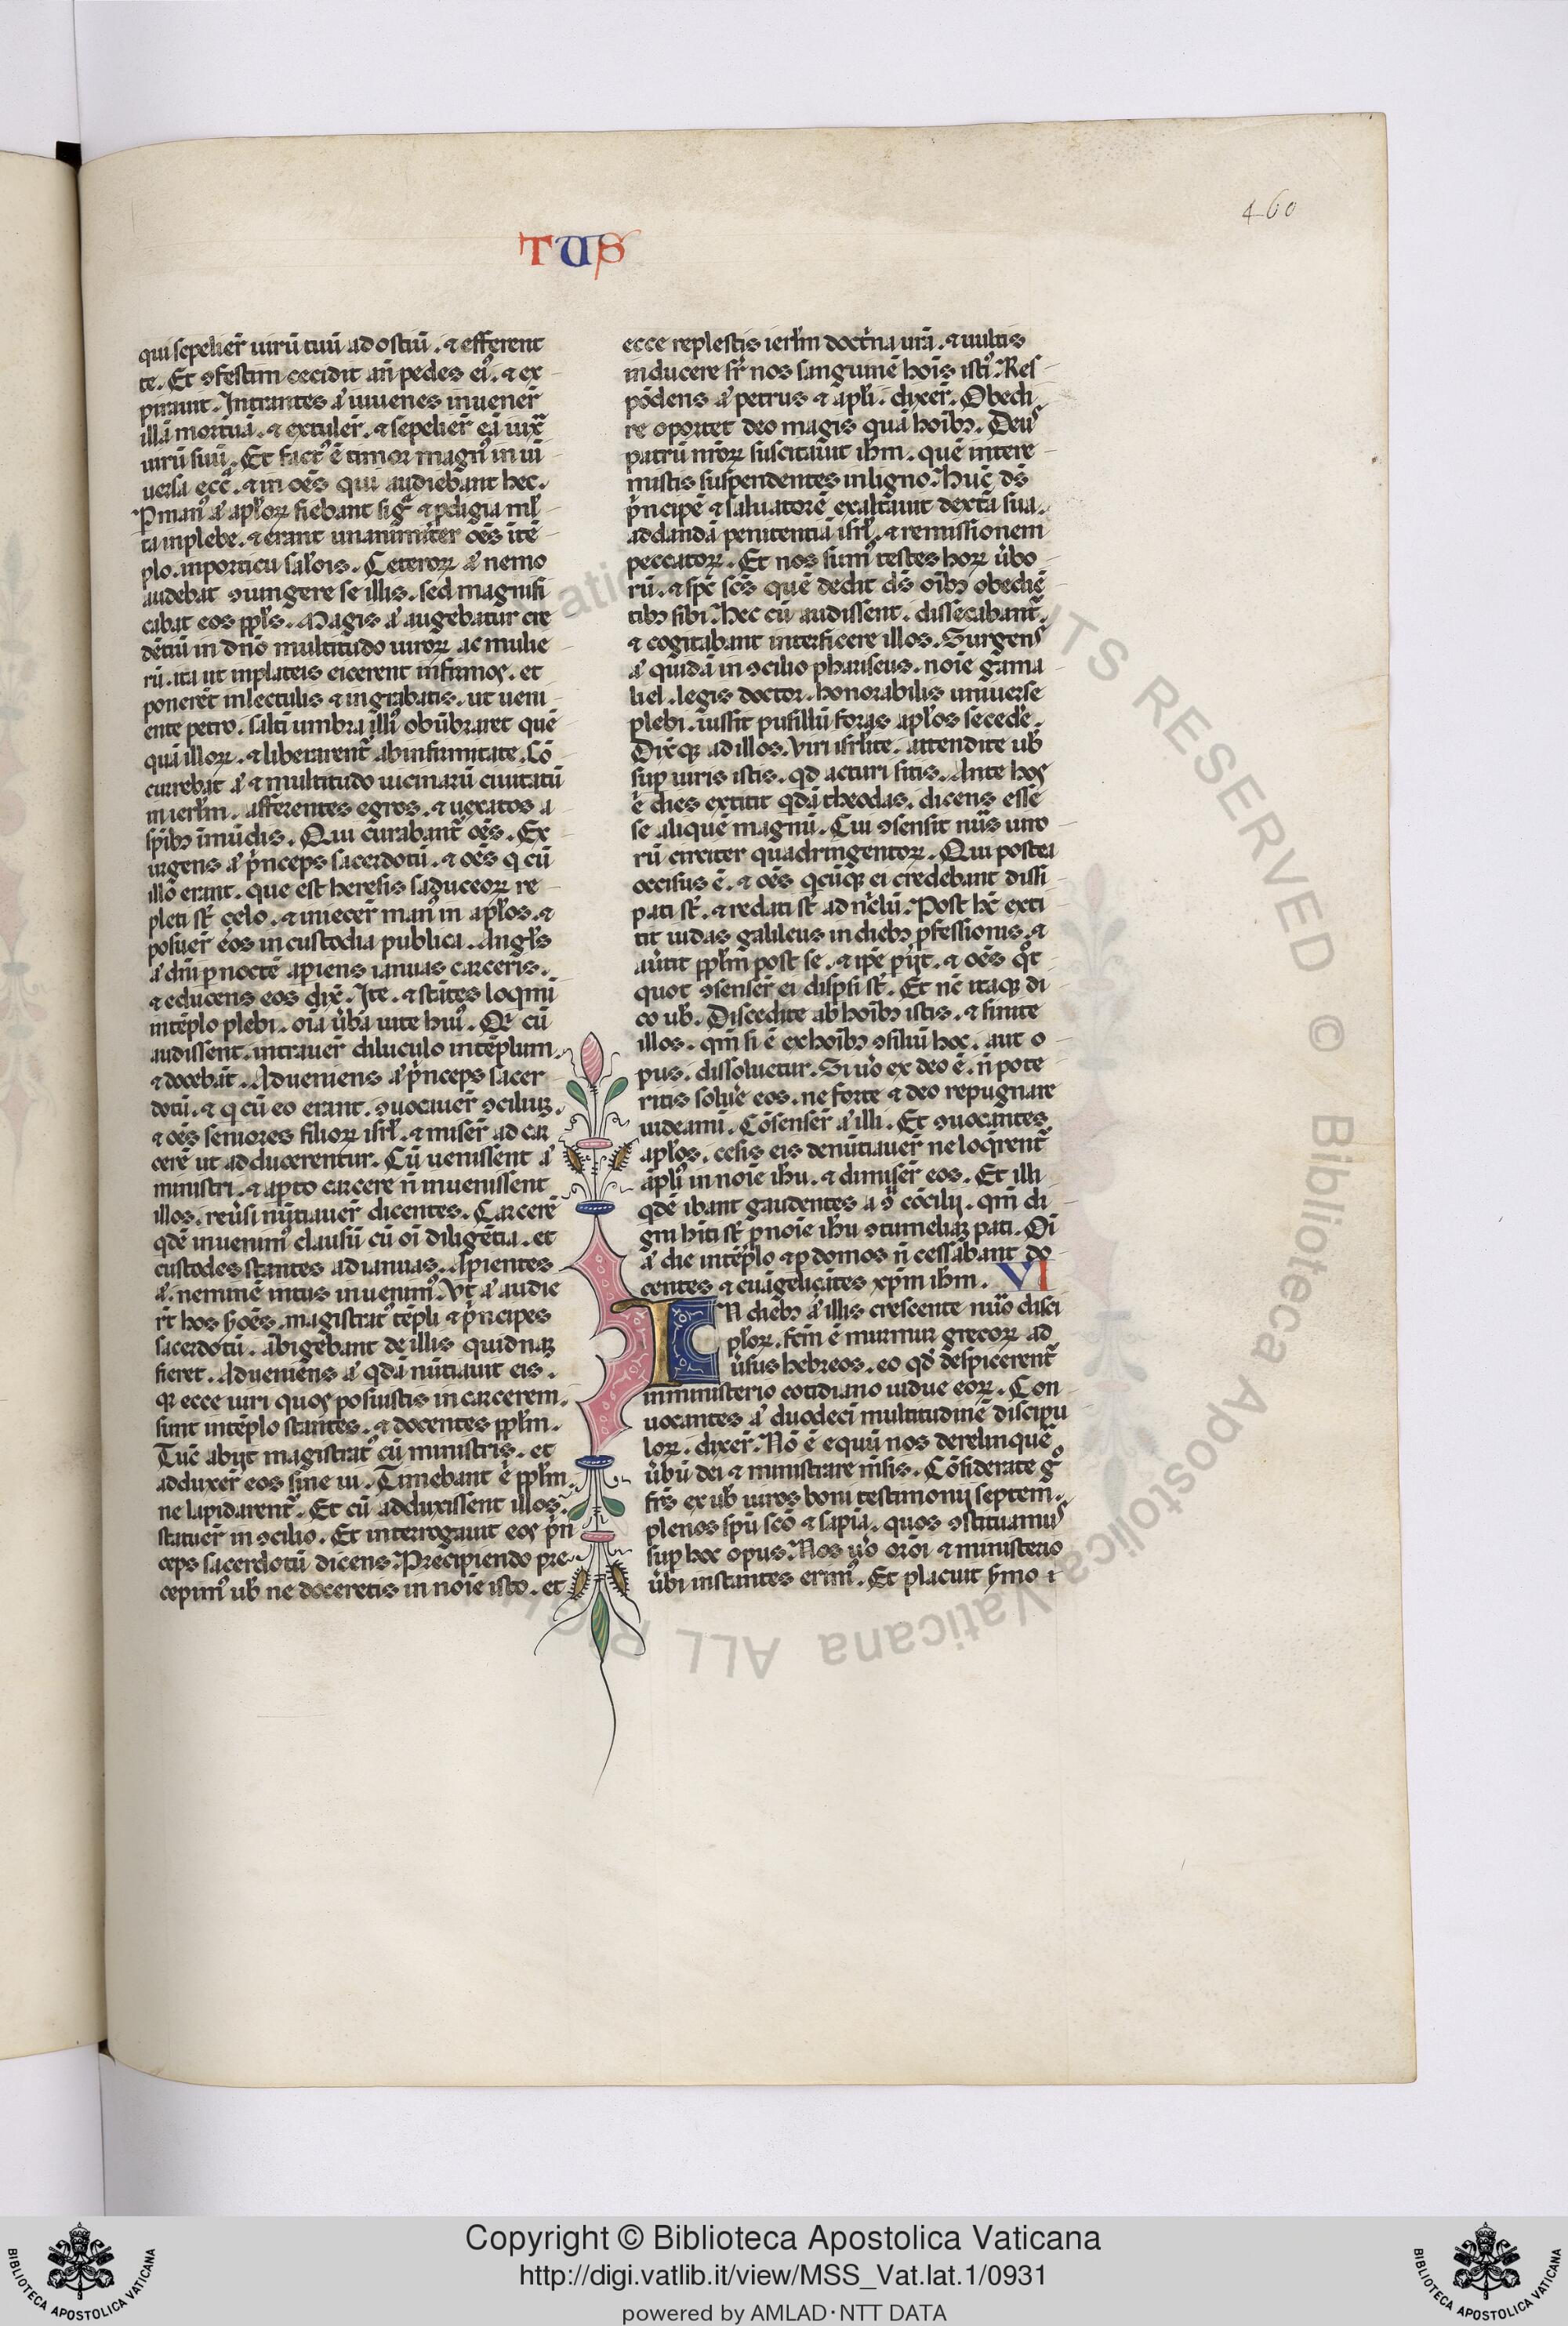 460
TUS
qui sepelier̄ uirū tuū ad ostiū . ⁊ efferent
te . Et ꝯfestim cecidit an̄ pedes eiꝰ . ⁊ ex
pirauit . Intrantes aͥ iuuenes inuener̄
illā mortuā . ⁊ extuler̄ . ⁊ sepelier̄ eā iux̄
uirū suū . Et factꝰ ē timor magnꝰ in ui
uersa ecc̄ . ⁊ in oēs qui audiebant hec .
P manꝰ aͥ apl̓oꝝ fiebant sigᷓ ⁊ ꝓdigia ml̓
ta in plebe . ⁊ erant unanimit̓er oēs ī tē
plo . in porticu sal̓ois . Ceteroꝝ aͥ nemo
audebat ꝯiungere se illis . sed magnifi
cabat eos ppl̓s . Magis aͥ augebatur cre
dētiū in dn̄o multitudo uiroꝝ ac mulie
rū . ita ut in plateis eicerent infirmos . et
ponerēt in lectulis ⁊ in grabatis . ut ueni
ente petro . saltī umbra illiꝰ obūbraret quē
quā illoꝝ . ⁊ liberarent᷑ ab infirmitate . Cō
currebat aͥ ⁊ multitudo uicinarū ciuitatū
in ierl̓m . afferentes egros . ⁊ uexatos a
spībꝫ īmūdis . Qui curabant᷑ oēs . Ex
urgens aͥ p̓nceps sacerdotū . ⁊ oēs q̇ cū
illo erant . que est heresis saduceoꝝ re
pleti st̄ çelo . ⁊ iniecer̄ manꝰ in apl̓os . ⁊
posuer̄ eos in custodia publica . Angl̓s
aͥ dn̄i ꝑ noctē apiens ianuas carceris .
⁊ educens eos dix̄ . Ite . ⁊ stātes loqmī
in tēplo plebi . oīa ūba uite huiꝰ . Qͥ cū
audissent . intrauer̄ diluculo in tēplum .
⁊ docebāt . Adueniens aͥ p̓nceps sacer
dotū . ⁊ q̇ cū eo erant . ꝯuocauer̄ ꝯciliuꝫ .
⁊ oēs seniores filioꝝ isrl̓ . ⁊ miser̄ ad car
cerē ut adducerentur . Cū uenissent aͥ
ministri . ⁊ apto carcere n̄ inuenissent
illos . reūsi nūtiauer̄ dicentes . Carcerē
qdē inuenimꝰ clausū cū oī diligētia . et
custodes stantes ad ianuas . Apientes
aͥ . neminē intus inuenimꝰ . Vt aͥ audie
rt̄ hos s̓moēs . magistratꝰ tēpli ⁊ p̓ncipes
sacerdotū . ābigebant de illis quidnaꝫ
fieret . Adueniens aͥ qdā nūtiauit eis .
qꝛ ecce uiri quos posuistis in carcerem .
sunt in tēplo stantes . ⁊ docentes ppl̓m .
Tūc abijt magistratꝰ cū ministris . et
adduxer̄ eos sine ui . Timebant .n. ppl̓m
ne lapidarent᷑ . Et cū adduxissent illos .
statuer̄ in ꝯcilio . Et interrogauit eos p̓n
ceps sacerdotū dicens . Precipiendo pre
cepimꝰ ub̄ ne doceretis in noīe isto . et
ecce replestis ierl̓m doct̓na ur̄a . ⁊ uultis
inducere sr̄ nos sanguinē hoīs istiꝰ . Res
pōdens aͥ petrus ⁊ apl̓i . dixer̄ . Obedi
re oportet deo magis quā hoībꝫ . Deus
patrū nr̄oꝝ suscitauit ihm̄ . quē intere
mistis suspendentes in ligno . Hūc ds̄
p̓ncipē ⁊ saluatorē exaltauit dext̓a sua .
ad dandā penitentiā isrl̓ . ⁊ remissionem
peccatoꝝ . Et nos sumꝰ testes hoꝝ ūbo
rū . ⁊ sp̄c scs̄ quē dedit ds̄ oībꝫ obediē
tibꝫ sibi . Hec cū audissent . dissecabant᷑ .
⁊ cogitabant interficere illos . Surgens
aͥ quidā in ꝯcilio phariseus . noīe gama
liel . legis doctor . honorabilis uniuerse
plebi . iussit pusillū foras apl̓os secede̓ .
Dix̄qꝫ ad illos . Viri isrl̓ite . attendite ub̄
sup uiris istis . qd acturi sitis . Ante hos
.n. dies extitit qdā theodas . dicens esse
se aliquē magnū . Cui ꝯsensit nūs uiro
rū circiter quadringentoꝝ . Qui postea
occisus ē . ⁊ oēs qcūqꝫ ei credebant dissi
pati st̄ . ⁊ redati st̄ ad nic̓lū . Post hc̄ exti
tit iudas galileus in diebꝫ ꝓfessionis . ⁊
aūtit ppl̓m post se . ⁊ ip̄e pijt . ⁊ oēs qͦt
quot ꝯsenser̄ ei disp̄si st̄ . Et nc̄ itaqꝫ di
co ub̄ . Discedite ab hoībꝫ istis . ⁊ sinite
illos . qm̄ si ē ex hoībꝫ ꝯsiliū hoc . aut o
pus . dissoluetur . Si uͦ ex deo ē . n̄ pote
ritis solue̓ eos . ne forte ⁊ deo repugnare
uideamī . Cōsenser̄ aͥ illi . Et ꝯuocantes
apl̓os . cesis eis denūtiauer̄ ne loq̇rent᷑
apl̓iꝰ in noīe ihu̅ . ⁊ dimiser̄ eos . Et illi
qdē ibant gaudentes a ꝯspc̄u cōcilij . qm̄ di
gni hīti st̄ ꝓ noīe ihu̅ ꝯtumeliaꝫ pati . Oī
aͥ die in tēplo ⁊ ꝑ domos n̄ cessabant do
centes ⁊ euāgeliçātes xp̄m ihm̄ . VI
IN diebꝫ aͥ illis crescente nūo disci
pl̓oꝝ . fcm̄ ē murmur grecoꝝ ad
ūsus hebreos . eo qd̓ despicerent᷑
in ministerio cotidiano uidue eoꝝ . Con
uocantes aͥ duodecī multitudinē discipu
loꝝ . dixer̄ . Nō ē equū nos derelinque̓
ūbū dei ⁊ ministrare mēsis . Cōsiderate gͦ
frs̄ ex ub̄ uiros boni testimonij septem .
plenos spū scō ⁊ sapīa . quos ꝯstituamus
sup hoc opus . Nos uͦo orōi ⁊ ministerio
ūbi instantes erimꝰ . Et placuit s̓mo ī
Copyright © Biblioteca Apostolica Vaticana
http://digi.vatlib.it/view/MSS_Vat.lat.1/0931
powered by AMLAD·NTT DATA
BIBLIOTECA APOSTOLICA VATICANA
BIBLIOTECA APOSTOLICA VATICANA
© Biblioteca Apostolica Vaticana ALL RIGHTS RESERVED